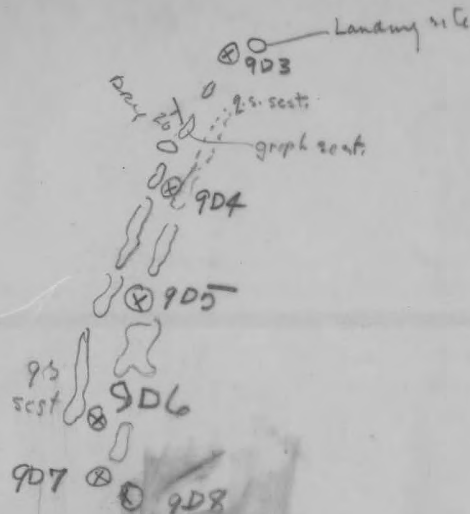 Landing site
9D3
q.s. sest.
20
graph sest.
9D4
9D5
q.s
sest
9D6
9D7
9D8